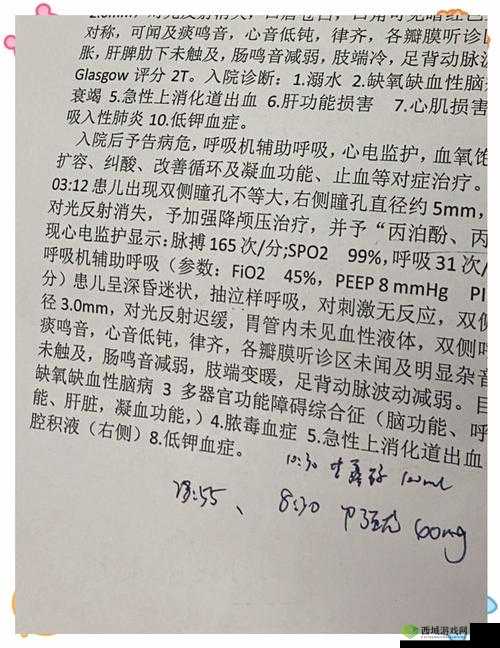 2.0mm，对光反射消失，口唇苍白，口角可见暗红色
对称，可闻及痰鸣音，心音低钝，律齐，各瓣膜听诊区
胀，肝脾肋下未触及，肠鸣音减弱，肢端冷，足背动脉波
Glasgow 评分 2T。入院诊断：1.溺水 2.缺氧缺血性脑病
衰竭 5.急性上消化道出血 6.肝功能损害 7.心肌损害
吸入性肺炎 10.低钾血症。
入院后予告病危，呼吸机辅助呼吸，心电监护，血氧饱
扩容、纠酸、改善循环及凝血功能、止血等对症治疗。
03:12 患儿出现双侧瞳孔不等大，右侧瞳孔直径约 5mm，
对光反射消失，予加强降颅压治疗，并予“丙泊酚、丙
现心电监护显示：脉搏 165 次/分;SPO2 99%，呼吸 31 次/
呼吸机辅助呼吸（参数：FiO2 45%，PEEP 8 mmHg PI
分）患儿呈深昏迷状，抽泣样呼吸，对刺激无反应，双侧
径 3.0mm，对光反射迟缓，胃管内未见血性液体，双侧呼
痰鸣音，心音低钝，律齐，各瓣膜听诊区未闻及明显杂音
未触及，肠鸣音减弱，肢端变暖，足背动脉波动减弱。目
缺氧缺血性脑病 3 多器官功能障碍综合征（脑功能、呼
能、肝脏，凝血功能，）4.脓毒血症 5.急性上消化道出血
腔积液（右侧）8.低钾血症。
10:30 甘露醇 100ml
8:30 甲强龙 60mg
西域游戏网